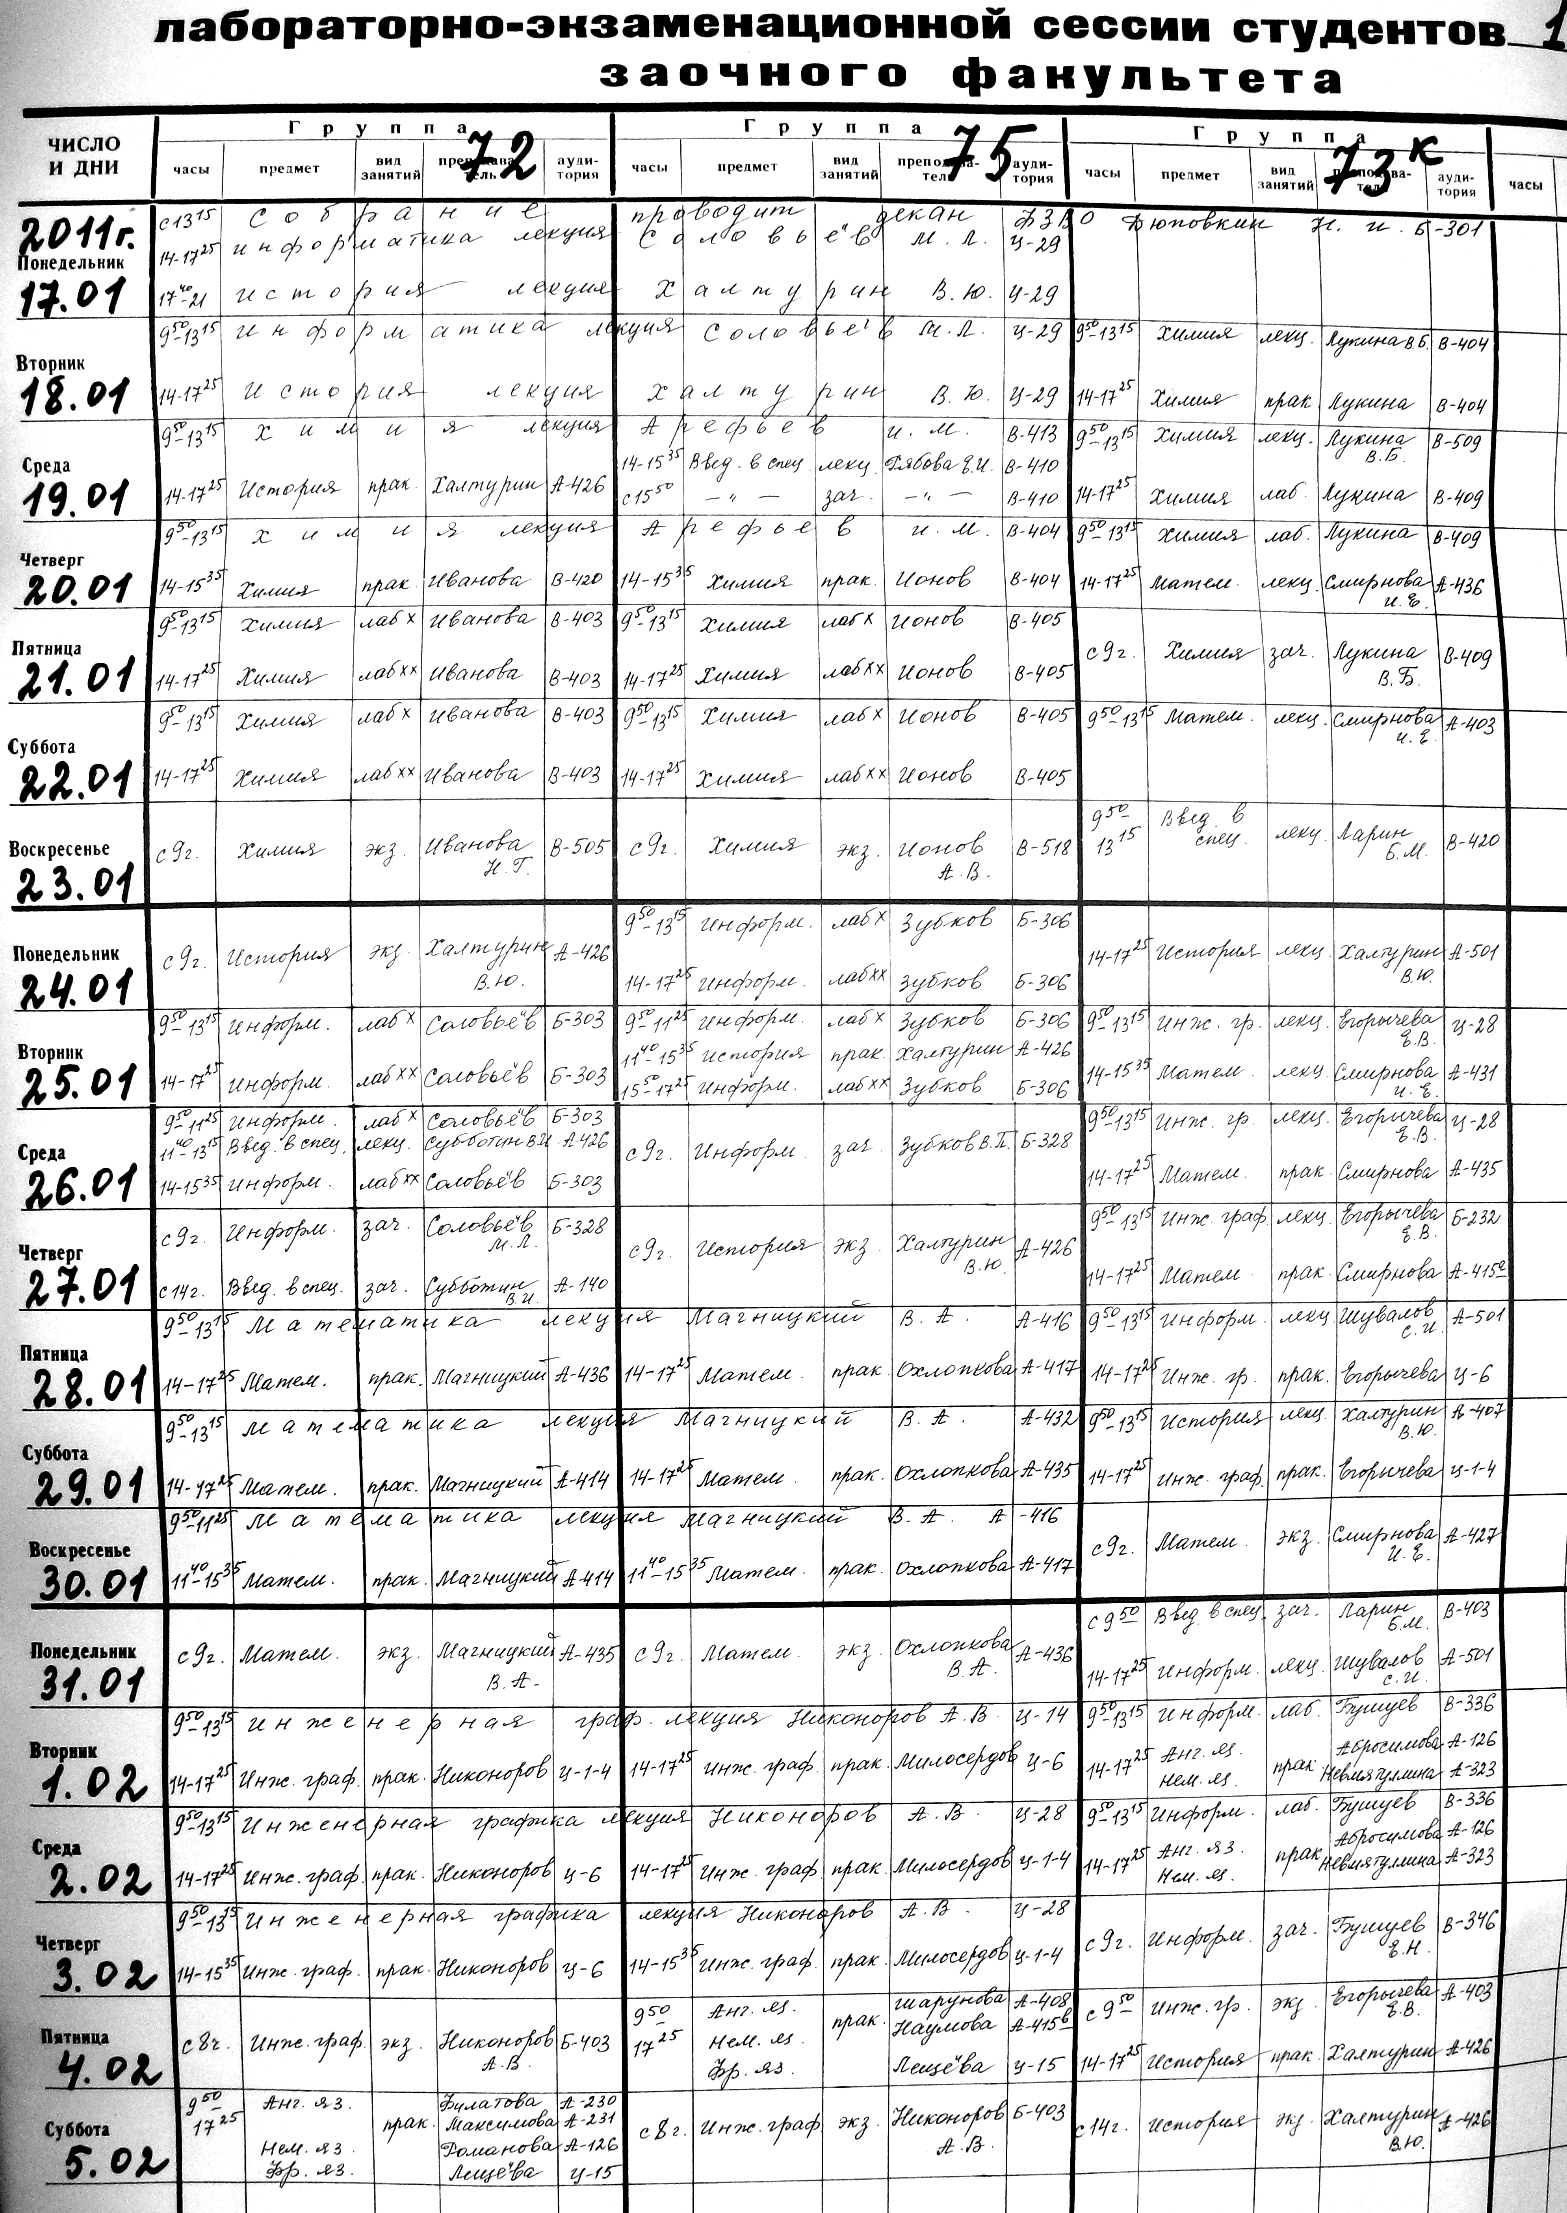 лабораторно-экзаменационной сессии студентов 1
заочного факультета
ЧИСЛО И ДНИ
Группа 72
часы предмет вид занятий преподаватель аудитория
Группа 75
часы предмет вид занятий преподаватель аудитория
Группа 73к
часы предмет вид занятий преподаватель аудитория
часы
2011г.
Понедельник 17.01
с 13 15 собрание проводит декан ФЗВО Дюповкин Н. И. Б-301
14-17 25 информатика лекция Соловьёв М. Л. Ц-29
17 40-21 история лекция Халтурин В. Ю. Ц-29
Вторник 18.01
9 50-13 15 информатика лекция Соловьёв М. Л. Ц-29 9 50-13 15 Химия лекц. Лукина В Б. В-404
14-17 25 история лекция Халтурин В. Ю. Ц-29 14-17 25 Химия прак Лукина В-404
Среда 19.01
9 50-13 15 химия лекция Арефьев И. М. В-413 9 50-13 15 Химия лекц. Лукина В.Б. В-509
14-15 35 Введ. в спец лекц. Рябова Е.И. В-410
14-17 25 История прак. Халтурин А-426 с 15 50 — " — зач. — " — В-410 14-17 25 Химия лаб. Лукина В-409
Четверг 20.01
9 50-13 15 химия лекция Арефьев И. М. В-404 9 50-13 15 Химия лаб. Лукина В-409
14-15 35 Химия прак. Иванова В-420 14-15 35 Химия прак. Ионов В-404 14-17 25 Матем. лекц. Смирнова И. Е. А-436
Пятница 21.01
9 50-13 15 Химия лаб х Иванова В-403 9 50-13 15 Химия лаб х Ионов В-405
с 9 г. Химия зач. Лукина В.Б. В-409
14-17 25 Химия лаб хх Иванова В-403 14-17 25 Химия лаб хх Ионов В-405
Суббота 22.01
9 50-13 15 Химия лаб х Иванова В-403 9 50-13 15 Химия лаб х Ионов В-405 9 50-13 15 Матем. лекц. Смирнова И. Е. А-403
14-17 25 Химия лаб хх Иванова В-403 14-17 25 Химия лаб хх Ионов В-405
Воскресенье 23.01
с 9 г. Химия экз. Иванова Н.Г. В-505 с 9 г. Химия экз. Ионов А.В. В-518 9 50-13 15 Введ. в спец. лекц. Ларин Б.М. В-420
Понедельник 24.01
9 50-13 15 Информ. лаб х Зубков Б-306
с 9 г. История экз. Халтурин В.Ю. А-426 14-17 25 История лекц. Халтурин В.Ю. А-501
14-17 25 Информ. лаб хх Зубков Б-306
Вторник 25.01
9 50-13 15 Информ. лаб х Соловьёв Б-303 9 50-11 25 Информ. лаб х Зубков Б-306 9 50-13 15 Инж. гр. лекц. Егорычева Е.В. Ц-28
11 40-15 35 История прак. Халтурин А-426
14-17 25 Информ. лаб хх Соловьёв Б-303 15 50-17 25 Информ. лаб хх Зубков Б-306 14-15 35 Матем. лекц. Смирнова И. Е. А-431
Среда 26.01
9 50-11 25 Информ. лаб х Соловьёв Б-303 9 50-13 15 Инж. гр. лекц. Егорычева Е.В. Ц-28
11 40-13 15 Введ. в спец. лекц. Субботин В.И. А-426 с 9 г. Информ. зач. Зубков В.П. Б-328
14-15 35 Информ. лаб хх Соловьёв Б-303 14-17 25 Матем. прак. Смирнова А-435
Четверг 27.01
с 9 г. Информ. зач. Соловьёв М.Л. Б-328 с 9 г. История экз. Халтурин В.Ю. А-426 9 50-13 15 Инж. граф лекц. Егорычева Е.В. Б-232
с 14 г. Введ. в спец. зач. Субботин В.И. А-140 14-17 25 Матем. прак. Смирнова А-415а
Пятница 28.01
9 50-13 15 Математика лекция Магницкий В. А. А-416 9 50-13 15 Информ. лекц Шувалов С.И. А-501
14-17 25 Матем. прак. Магницкий А-436 14-17 25 Матем. прак. Охлопкова А-417 14-17 25 Инж. гр. прак. Егорычева Ц-6
Суббота 29.01
9 50-13 15 Математика лекция Магницкий В. А. А-432 9 50-13 15 История лекц. Халтурин В.Ю. А-407
14-17 25 Матем. прак. Магницкий А-414 14-17 25 Матем. прак. Охлопкова А-435 14-17 25 Инж. граф. прак. Егорычева Ц-1-4
Воскресенье 30.01
9 50-11 25 Математика лекция Магницкий В. А. А-416 с 9 г. Матем. экз. Смирнова И. Е. А-427
11 40-15 35 Матем. прак. Магницкий А-414 11 40-15 35 Матем. прак. Охлопкова А-417
Понедельник 31.01
с 9 50 Введ. в спец. зач. Ларин Б.М. В-403
с 9 г. Матем. экз. Магницкий В.А. А-435 с 9 г. Матем. экз. Охлопкова В.А. А-436
14-17 25 Информ. лекц. Шувалов С.И. А-501
Вторник 1.02
9 50-13 15 Инженерная граф. лекция Никоноров А.В. Ц-14 9 50-13 15 Информ. лаб. Бушуев В-336
14-17 25 Инж. граф. прак. Никоноров Ц-1-4 14-17 25 Инж. граф. прак. Милосердов Ц-6 14-17 25 Анг. яз. прак Абросимова А-126
Нем. яз. Невмятуллина А-323
Среда 2.02
9 50-13 15 Инженерная графика лекция Никоноров А.В. Ц-28 9 50-13 15 Информ. лаб. Бушуев В-336
14-17 25 Инж. граф. прак. Никоноров Ц-6 14-17 25 Инж. граф. прак. Милосердов Ц-1-4 14-17 25 Анг. яз. прак Абросимова А-126
Нем. яз. Невмятуллина А-323
Четверг 3.02
9 50-13 15 Инженерная графика лекция Никоноров А.В. Ц-28 с 9 г. Информ. зач. Бушуев Е.Н. В-346
14-15 35 Инж. граф. прак. Никоноров Ц-6 14-15 35 Инж. граф. прак. Милосердов Ц-1-4
Пятница 4.02
с 8 г. Инж. граф. экз. Никоноров А.В. Б-403 9 50-17 25 Анг. яз. прак. Шарунова А-408 с 9 50 Инж. гр. экз. Егорычева Е.В. А-403
Нем. яз. Наумова А-415б
Фр. яз. Лещёва Ц-15 14-17 25 История прак. Халтурин А-426
Суббота 5.02
9 50-17 25 Анг. яз. прак. Филатова А-230
Максимова А-231 с 8 г. Инж. граф экз. Никоноров А.В. Б-403 с 14 г. История экз. Халтурин В.Ю. А-426
Нем. яз. Романова А-126
Фр. яз. Лещёва Ц-15